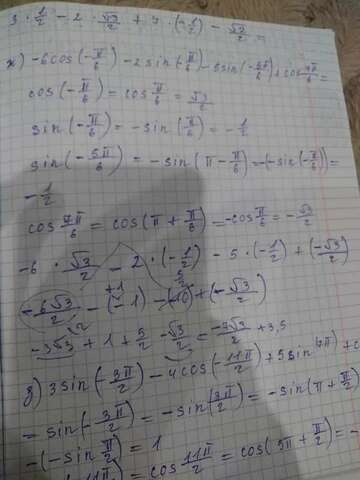 3 · 1/2 - 2 · √3/2 + 7 · (-1/2) - √3/2 =
ж) -6cos(-π/6) - 2sin(-π/6) - 5sin(-5π/6) + cos 7π/6 =
cos(-π/6) = cos π/6 = √3/2
sin(-π/6) = -sin(π/6) = -1/2
sin(-5π/6) = -sin(π - π/6) = -(-sin(-π/6)) =
-1/2
cos 7π/6 = cos(π + π/6) = -cos π/6 = -√3/2
-6 · √3/2 - 2 · (-1/2) - 5 · (-1/2) + (-√3/2)
-6√3/2 - (-1) + (-√3/2)
-3√3 + 1 + 5/2 - √3/2 = + 3,5
з) 3sin(-3π/2) - 4cos(-11π/2) + 5sin 7π + c
= sin(-3π/2) = -sin(3π/2) = -sin(π + π/2)
-(-sin π/2) = 1
cos 11π/2 = cos(5π + π/2) = -